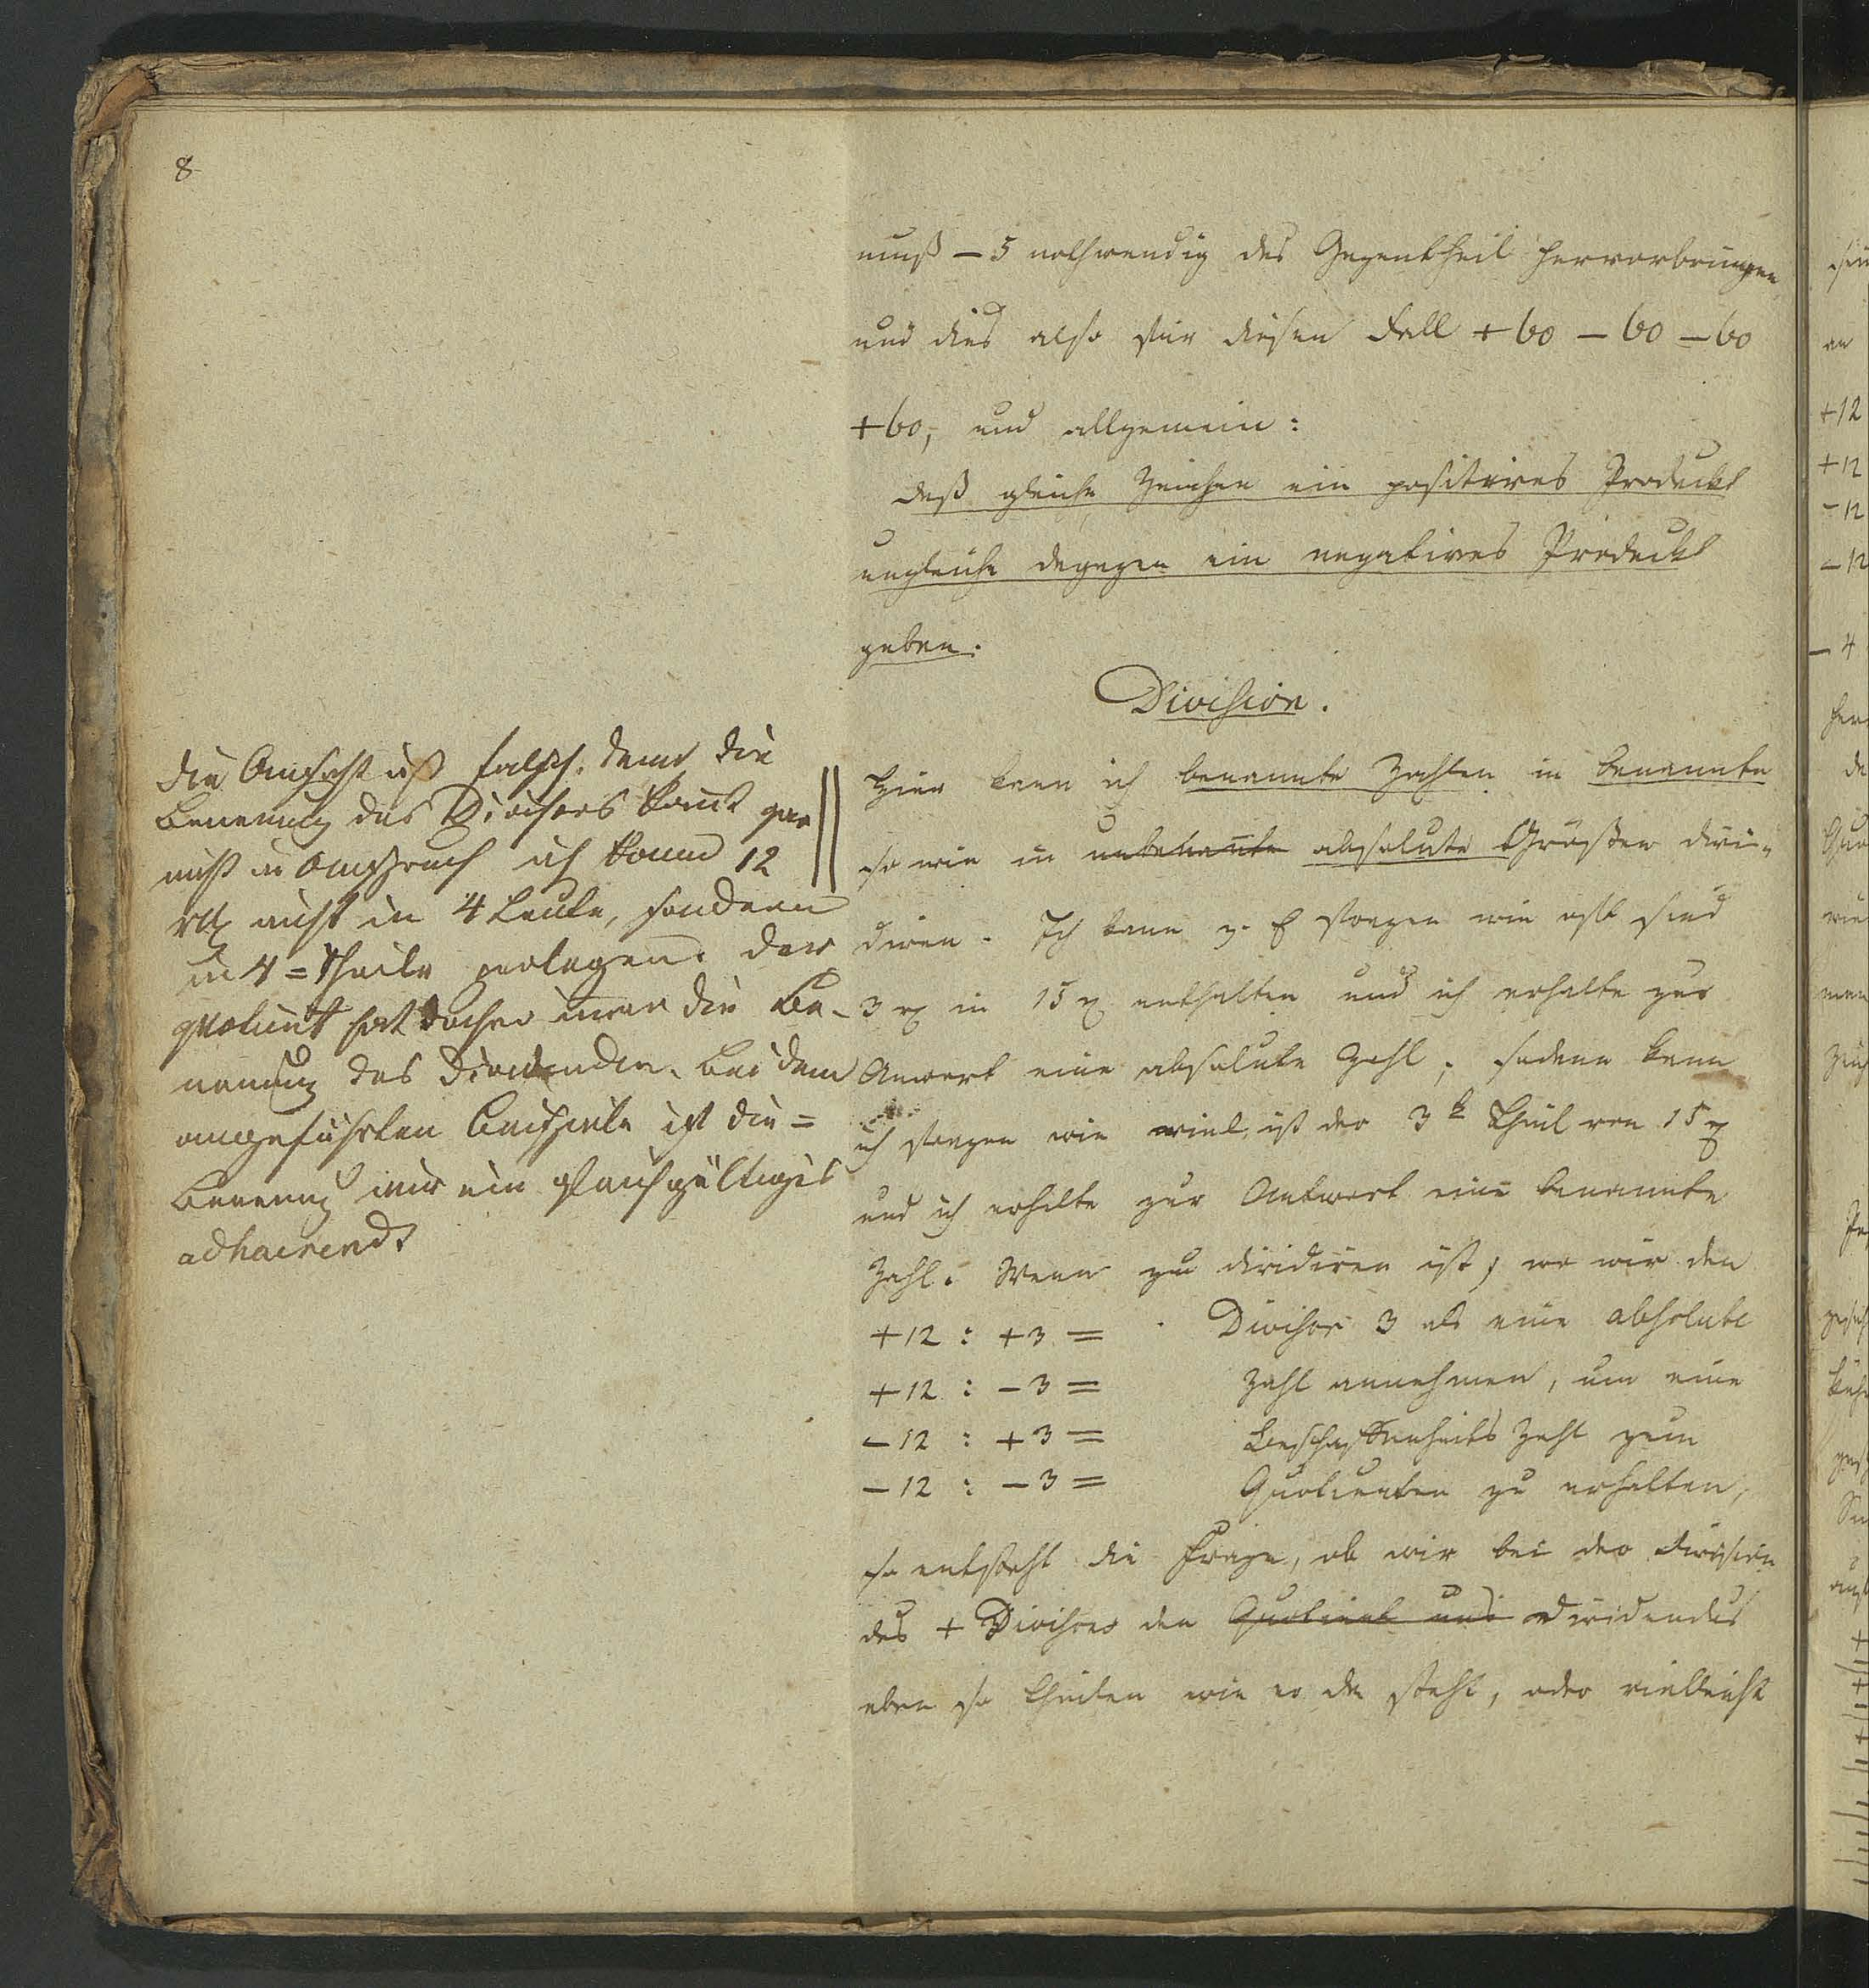 8
muß – 5 nothwendig das Gegentheil hervorbringen
und dies also für diesen Fall + 60 – 60 – 60
+ 60, und allgemein:
daß gleiche Zeichen ein positives Produckt
ungleiche dagegen ein negatives Produckt
geben.
Division.
Hier kann ich benannte Zahlen in benannte
so wie in unbenannte absolute Größen divi-
diren. Ich kann z. E fragen wie oft sind
3 rℓ in 15 rℓ enthalten und ich erhalte zur
Anwort eine absolute Zahl; sodann kann
ich fragen wie viel ist der 3te Theil von 15 rℓ
und ich erhalte zur Antwort eine benannte
Zahl. Wenn zu dividiren ist, wo wir den
+ 12 : + 3 = Divisor 3 als eine absolute
+ 12 : – 3 = Zahl annehmen, um eine
– 12 : + 3 = Beschaffenheits Zahl zum
– 12 : – 3 = Quotienten zu erhalten,
so entsteht die Frage, ob wir bei der Division
des + Divisors den Quotient und Dividendus
eben so theilen wie er da steht, oder vielleicht
die Ansicht ist falsch, denn die
Benennung des Divisors komt gar
nicht in Anspruch ich kann 12
rℓ nicht in 4 Leute, sondern
in 4 = Theile zerlegen. der
quotient hat daher immer die Be-
nennung des Dividenden. Bei dem
angeführten Beispiele ist die =
Benennung nur ein gleichgültiges
adhaerens